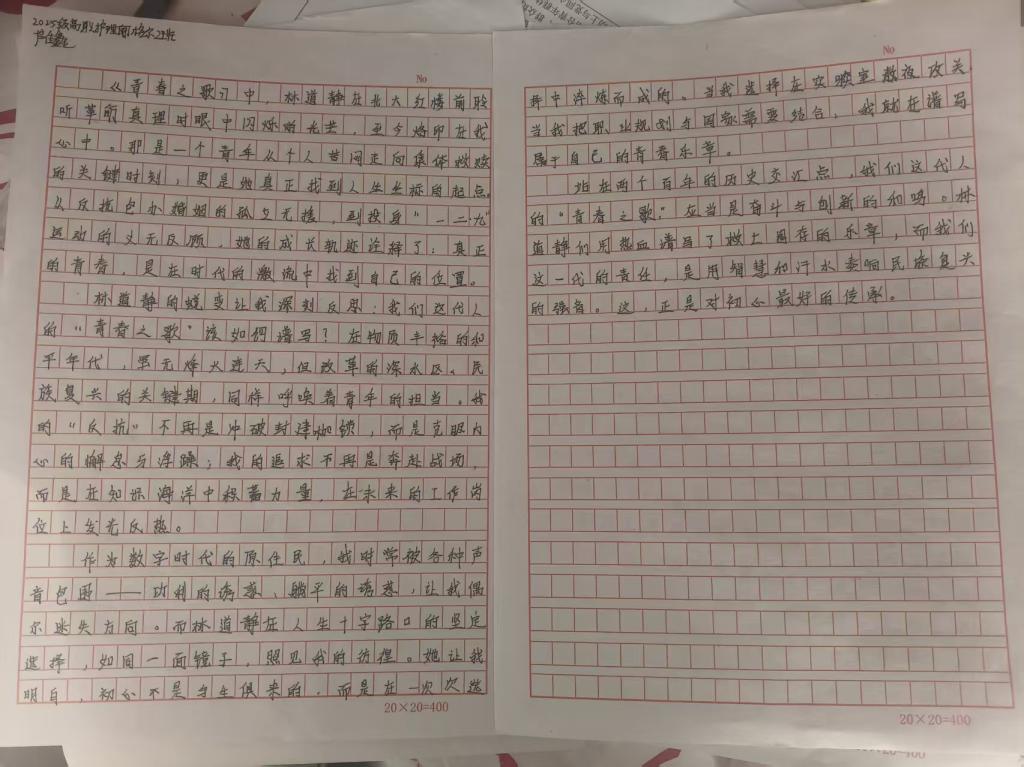 2025级高职护理
No
《青春之歌》中，林道静在北大红楼前聆
听革命真理时眼中闪烁的光芒，至今烙印在我
心中。那是一个青年从个人苦闷走向集体
的关键时刻，更是她真正找到人生坐标的起点。
从反抗包办婚姻的孤立无援，到投身"一二·九"
运动的义无反顾，她的成长轨迹诠释了：真正
的青春，是在时代的激流中找到自己的位置。
林道静的蜕变让我深刻反思：我们这代人
的"青春之歌"该如何谱写？在物质丰裕的和
平年代，虽无烽火连天，但改革的深水区、民
族复兴的关键期，同样呼唤着青年的担当。我
的"反抗"不再是冲破封建枷锁，而是克服内
心的懈怠与浮躁；我的追求不再是奔赴战场，
而是在知识海洋中积蓄力量，在未来的工作岗
位上发光反热。
作为数字时代的原住民，我时常被各种声
音包围——功利的诱惑、躺平的诱惑，让我偶
尔迷失方向。而林道静在人生十字路口的坚定
选择，如同一面镜子，照见我的彷徨。她让我
明白，初心不是与生俱来的，而是在一次次选
20×20=400
No
择中淬炼而成的。当我选择在实验室熬夜攻关，
当我把职业规划与国家需要结合，我就在谱写
属于自己的青春乐章。
站在两个百年的历史交汇点，我们这代人
的"青春之歌"应当是奋斗与创新的和鸣。林
道静们用热血谱写了救亡图存的乐章，而我们
这一代的责任，是用智慧和汗水奏响民族复兴
的强音。这，正是对初心最好的传承。
20×20=400
20×20=400